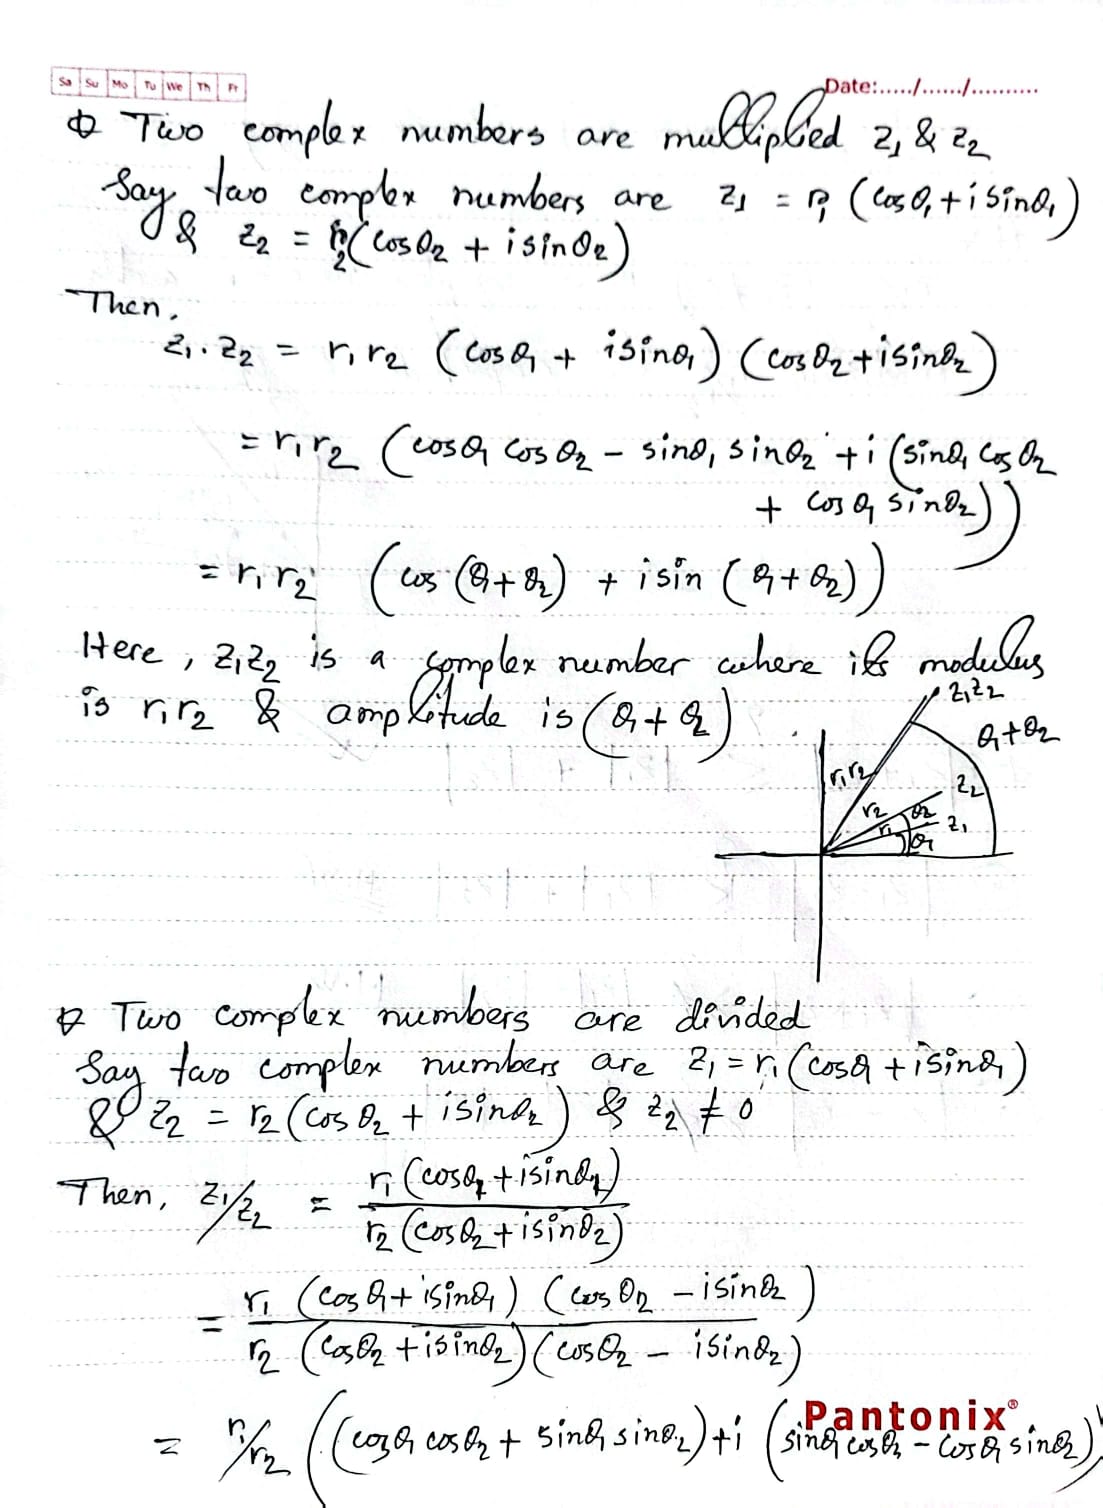 Sa Su Mo Tu We Th Fr
Date:...../....../..........
Two complex numbers are multiplied z₁ & z₂
Say two complex numbers are z₁ = r₁ (cosθ₁ + i sinθ₁)
& z₂ = r₂ (cosθ₂ + i sinθ₂)
Then,
z₁ . z₂ = r₁ r₂ (cosθ₁ + i sinθ₁) (cosθ₂ + i sinθ₂)
= r₁ r₂ (cosθ₁ cosθ₂ − sinθ₁ sinθ₂ + i (sinθ₁ cosθ₂
+ cosθ₁ sinθ₂))
= r₁ r₂ (cos (θ₁ + θ₂) + i sin (θ₁ + θ₂))
Here, z₁z₂ is a complex number where its modulus
is r₁ r₂ & amplitude is (θ₁ + θ₂)
z₁z₂
θ₁ + θ₂
r₁ r₂
z₂
r₂ θ₂
r₁ θ₁ z₁
Two complex numbers are divided
Say two complex numbers are z₁ = r₁ (cosθ₁ + i sinθ₁)
& z₂ = r₂ (cosθ₂ + i sinθ₂) & z₂ ≠ 0
Then, z₁/z₂ = r₁ (cosθ₁ + i sinθ₁)
r₂ (cosθ₂ + i sinθ₂)
= r₁ (cosθ₁ + i sinθ₁) (cosθ₂ − i sinθ₂)
r₂ (cosθ₂ + i sinθ₂) (cosθ₂ − i sinθ₂)
Pantonix®
= r₁/r₂ ((cosθ₁ cosθ₂ + sinθ₁ sinθ₂) + i (sinθ₁ cosθ₂ − cosθ₁ sinθ₂))